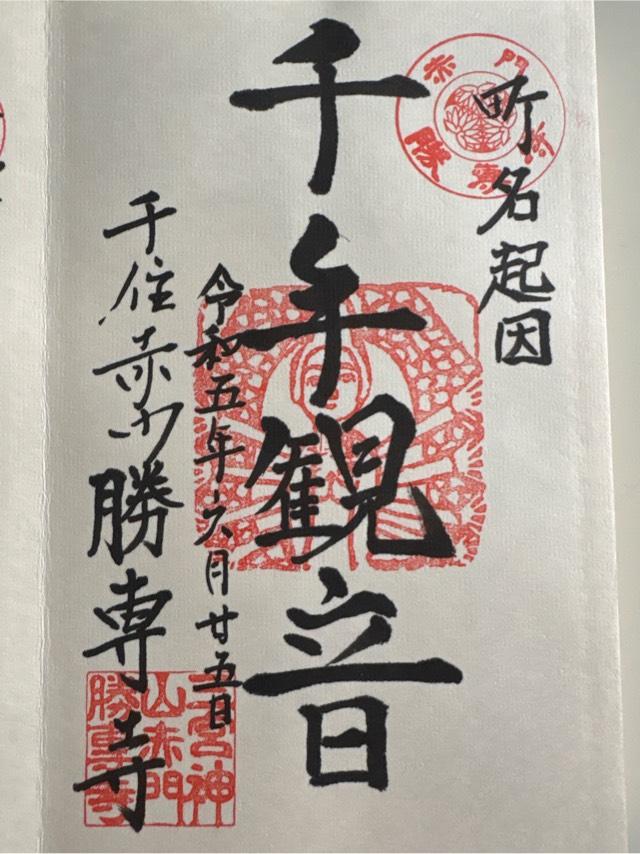 町名起因
赤門
勝專寺
千手観音
令和五年六月廿五日
千住赤門勝専寺
三宮神
山赤門
勝專寺